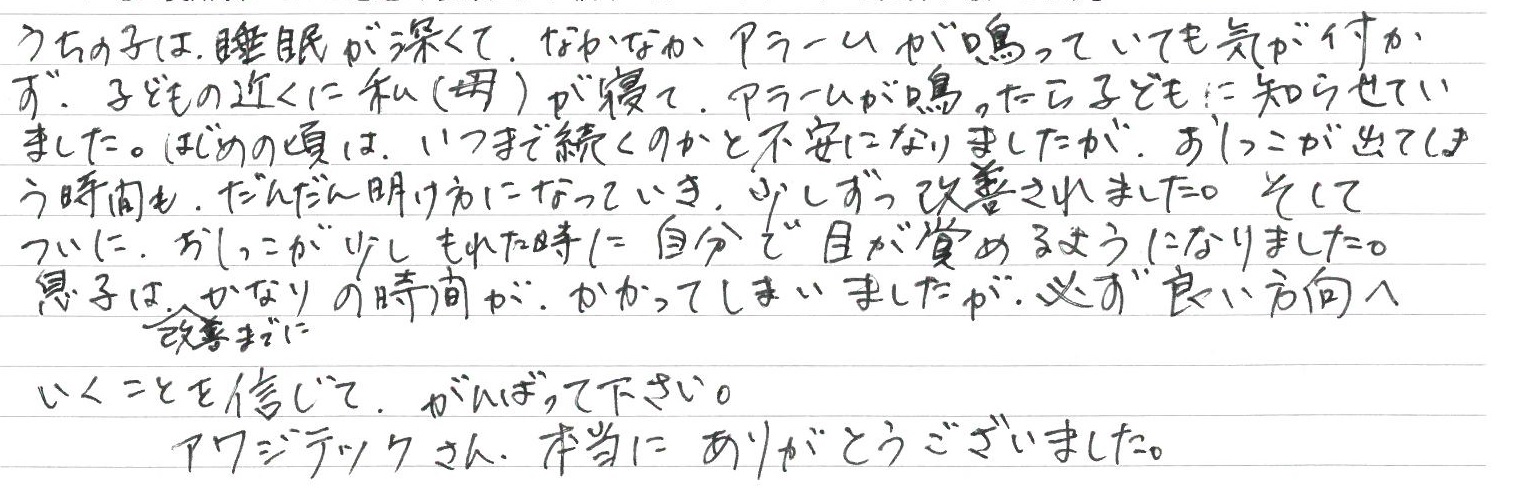 うちの子は、睡眠が深くて、なかなかアラームが鳴っていても気が付か
ず、子どもの近くに私(母)が寝て、アラームが鳴ったら子どもに知らせてい
ました。はじめの頃は、いつまで続くのかと不安になりましたが、おしっこが出てしま
う時間も、だんだん明け方になっていき、少しずつ改善されました。そして
ついに、おしっこが少しもれた時に自分で目が覚めるようになりました。
息子は、かなりの時間が、かかってしまいましたが、必ず良い方向へ
改善までに
いくことを信じて、がんばって下さい。
アワジテックさん、本当にありがとうございました。